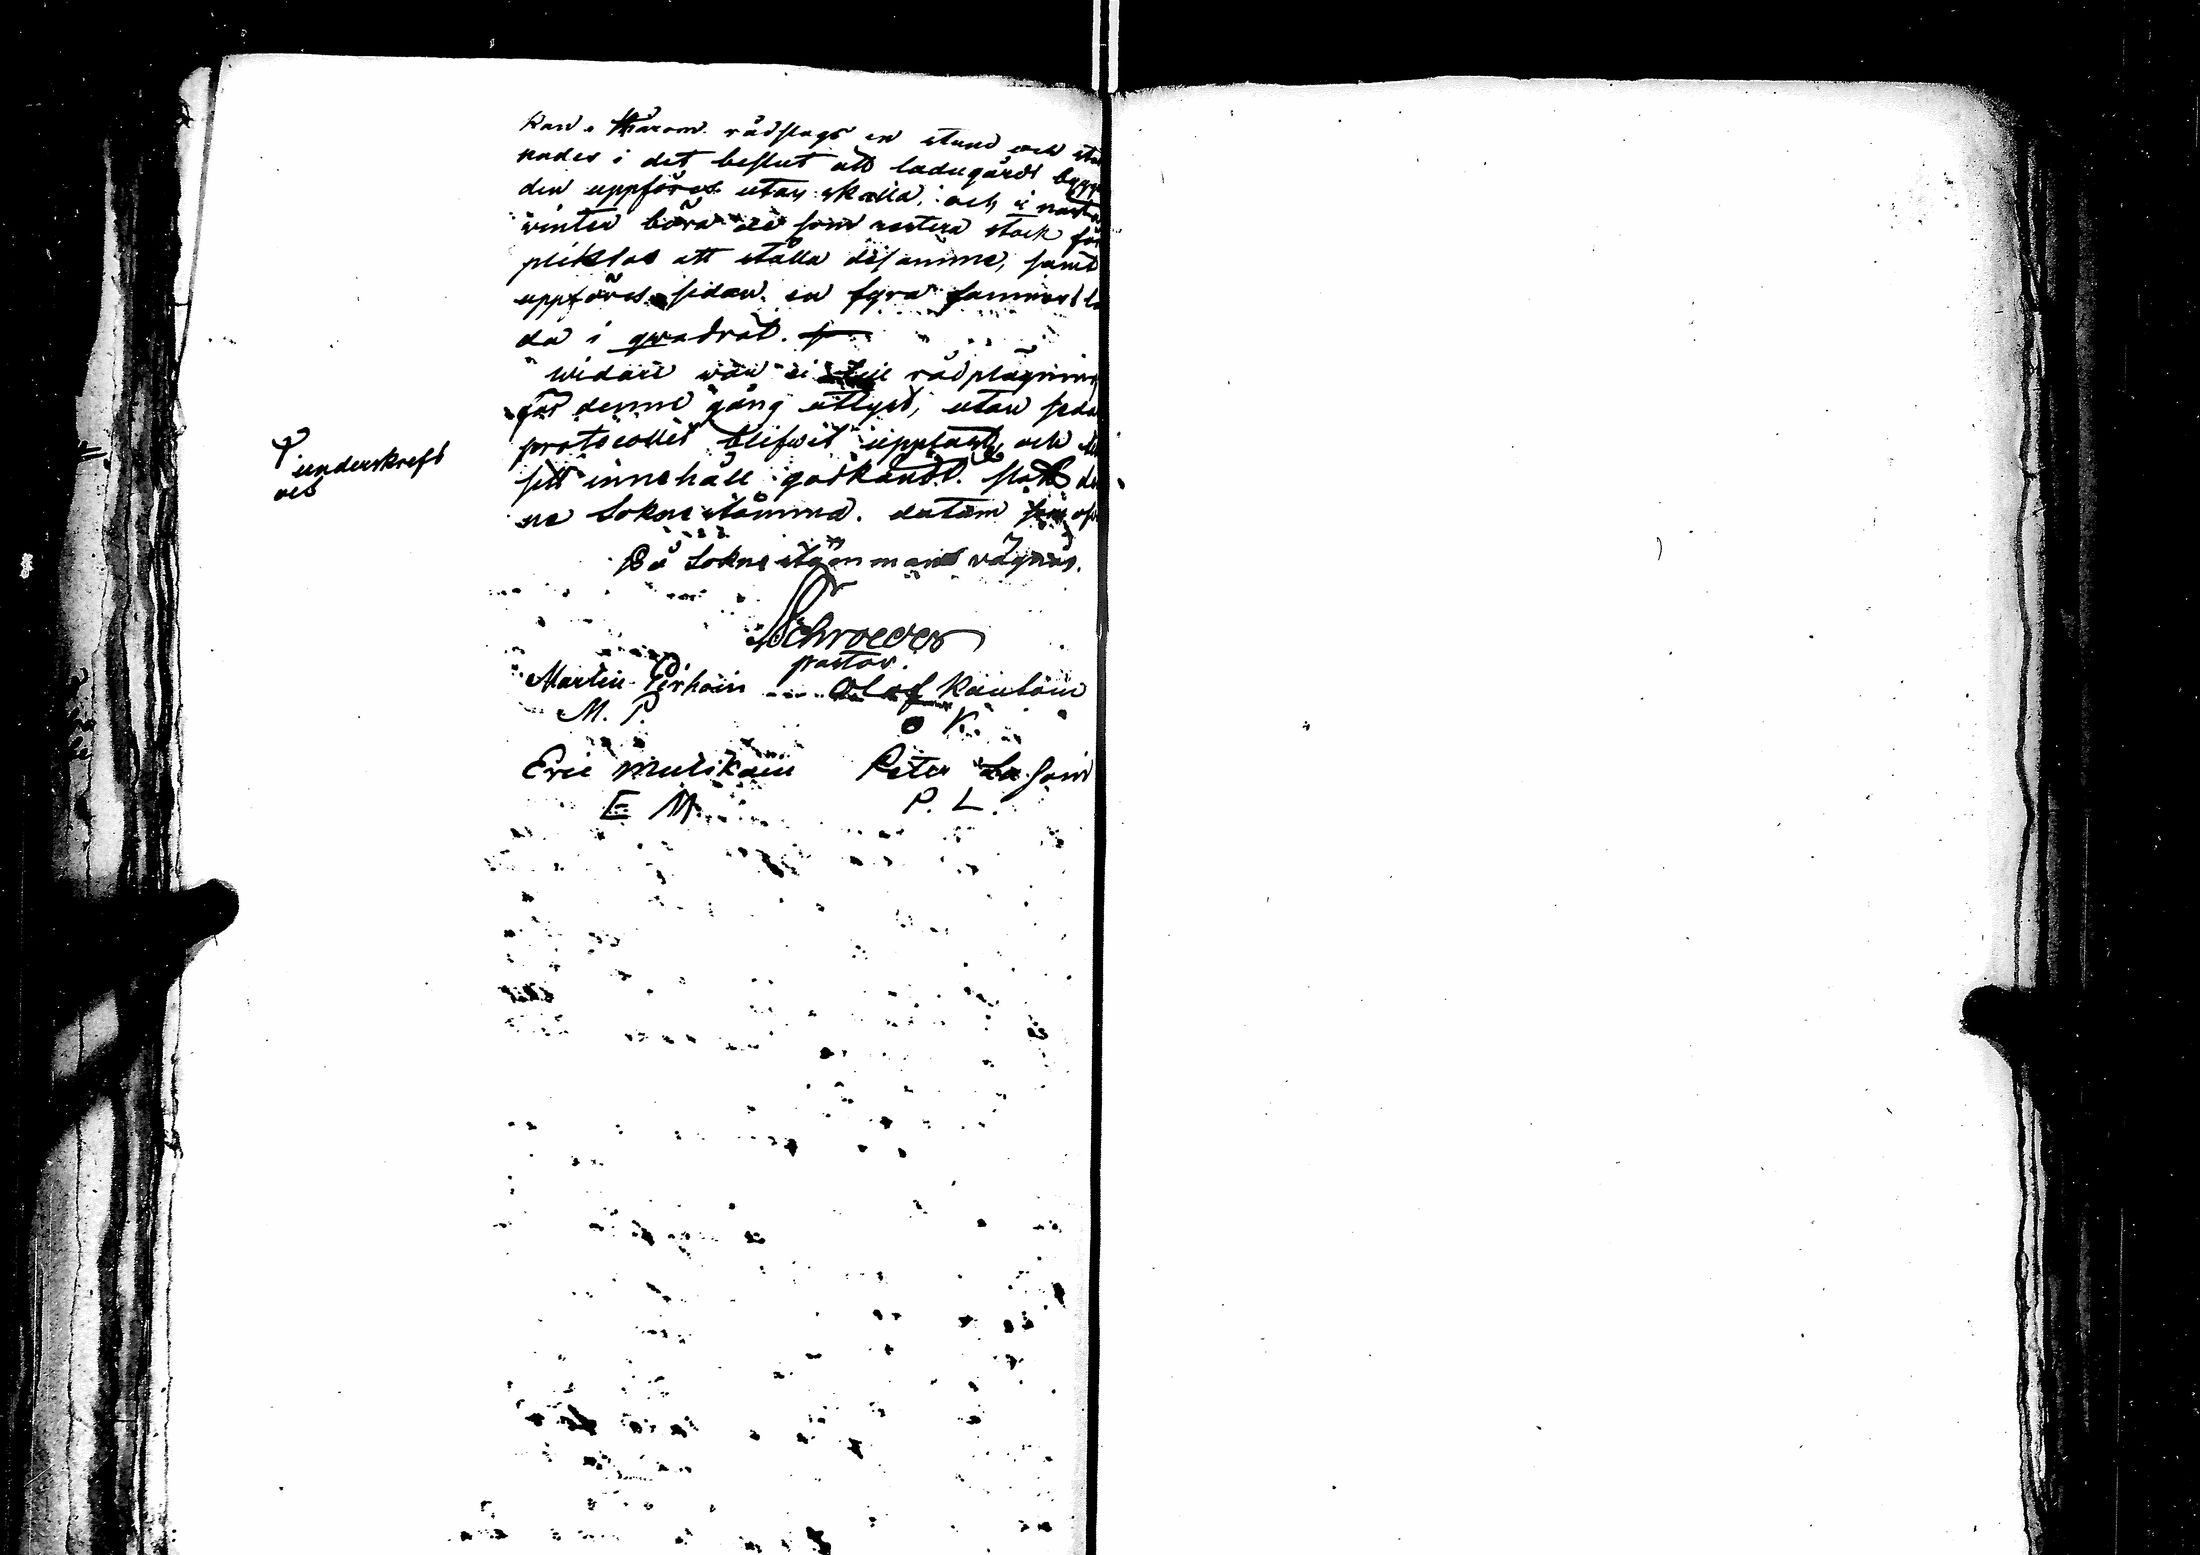 kan. Härom rådslags en stund och sta
nades i det beslut att ladugårds bygg
den uppföres utan skälla, och i nästa
winter böra de som restera stock för
pliktas att ställa desamme, samt
uppföres sedan en fyra famnars la
da i qwadrat.
widare war ei till rådplägning
för denne gång utlyst, utan sedan
protocollet blifwit uppläst, och till
sitt innehåll godkändt. slöts den
ne Sokne stämma. datum som of
På Sokne stämmans wägnar.
underskrefs
Schroeder
pastor.
Martin Pirhoin Olof Kaulain
M. P. O K.
Eric Mulikain Peter
E M P. L.